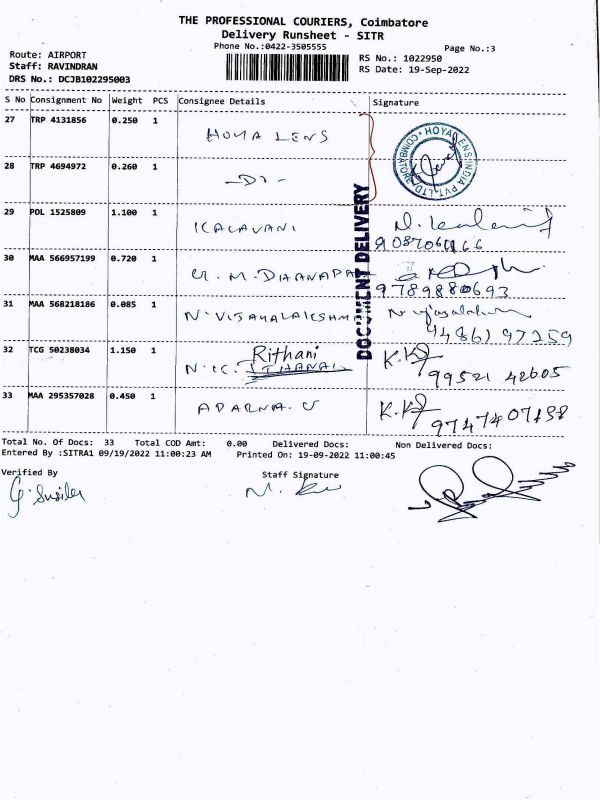 THE PROFESSIONAL COURIERS, Coimbatore
Delivery Runsheet - SITR
Phone No.:0422-3505555
Page No.:3
Route: AIRPORT
RS No.: 1022950
Staff: RAVINDRAN
RS Date: 19-Sep-2022
DRS No.: DCJB102295003
S No Consignment No Weight PCS Consignee Details Signature
27 TRP 4131856 0.250 1 HOYA LENS
HOYA LENS INDIA PVT. LTD. COIMBATORE
28 TRP 4694972 0.260 1 -DO-
DOCUMENT DELIVERY
29 POL 1525809 1.100 1 KALAVANI
30 MAA 566957199 0.720 1
9789880693
31 MAA 568218186 0.085 1 N. VIJAYALAKSHMI
94861 97259
32 TCG 50238034 1.150 1 Rithani
N.K.
K.K
99521 42605
33 MAA 295357028 0.450 1 APARNA. U
K.K
Total No. Of Docs: 33 Total COD Amt: 0.00 Delivered Docs: Non Delivered Docs:
Entered By :SITRA1 09/19/2022 11:00:23 AM Printed On: 19-09-2022 11:00:45
Verified By
Staff Signature